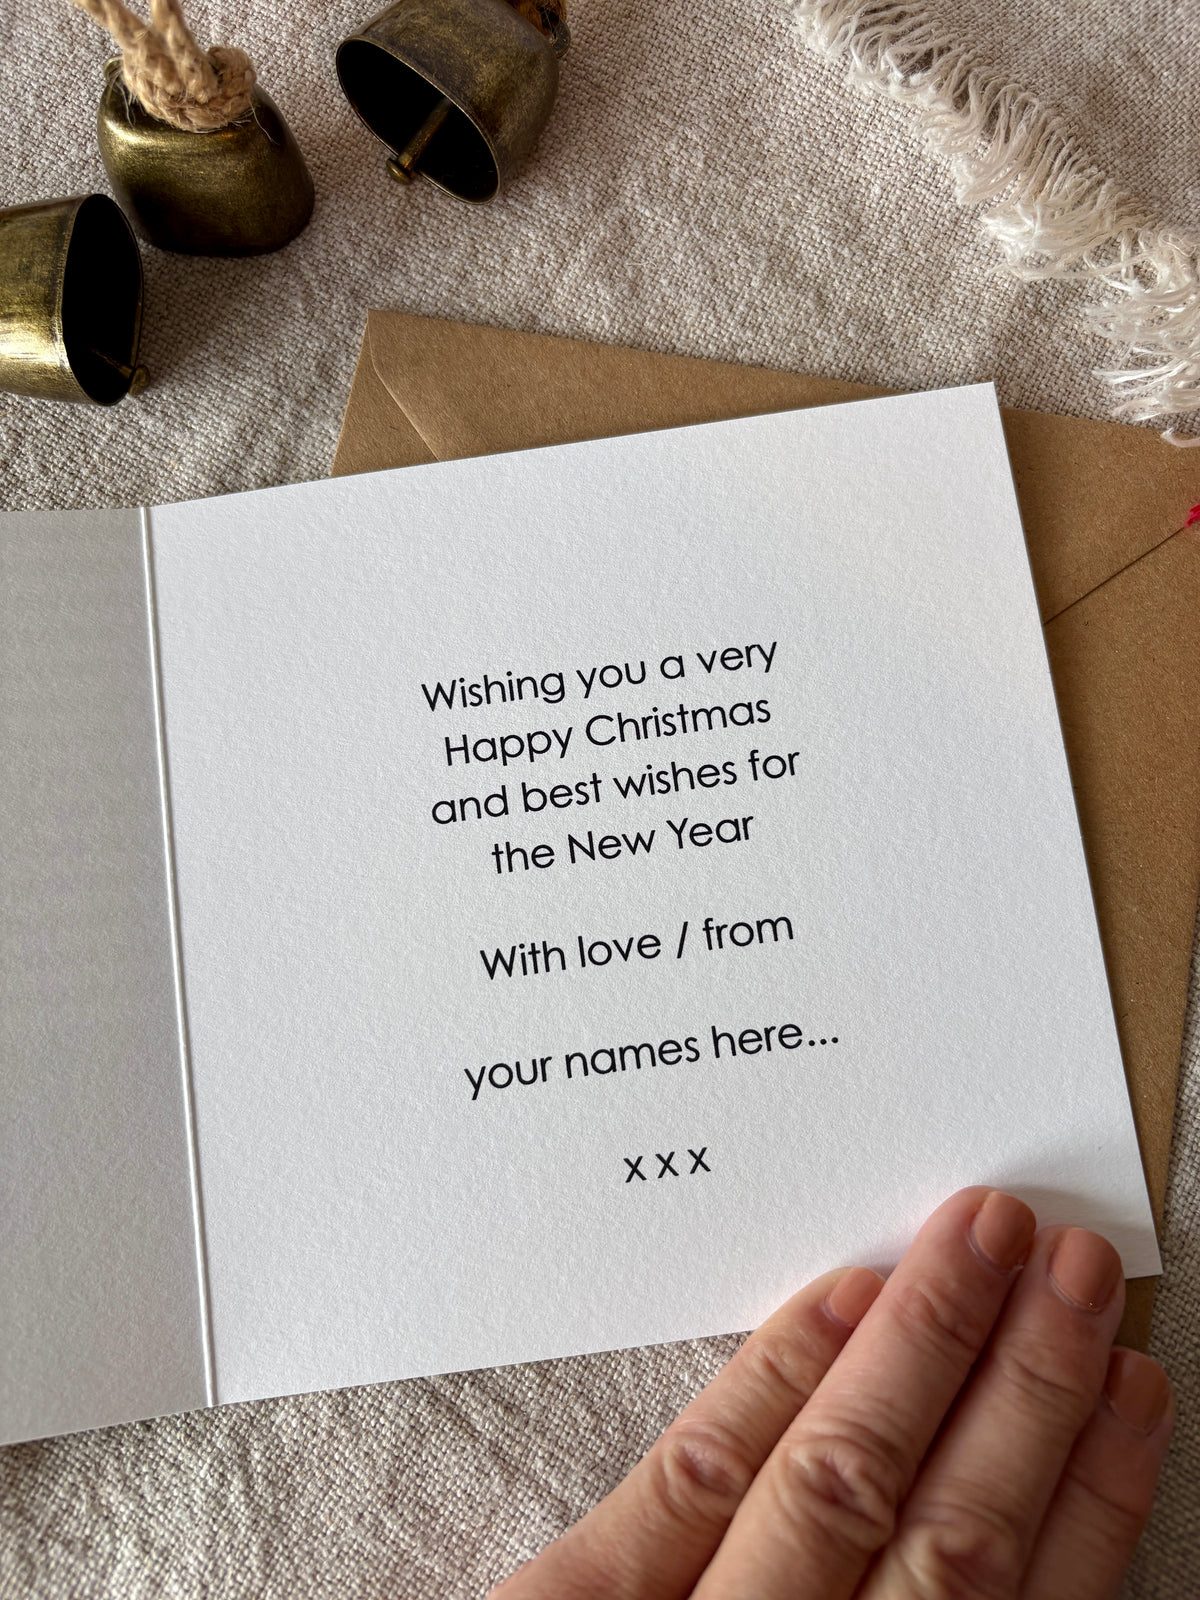 Wishing you a very
Happy Christmas
and best wishes for
the New Year
With love / from
your names here...
x x x